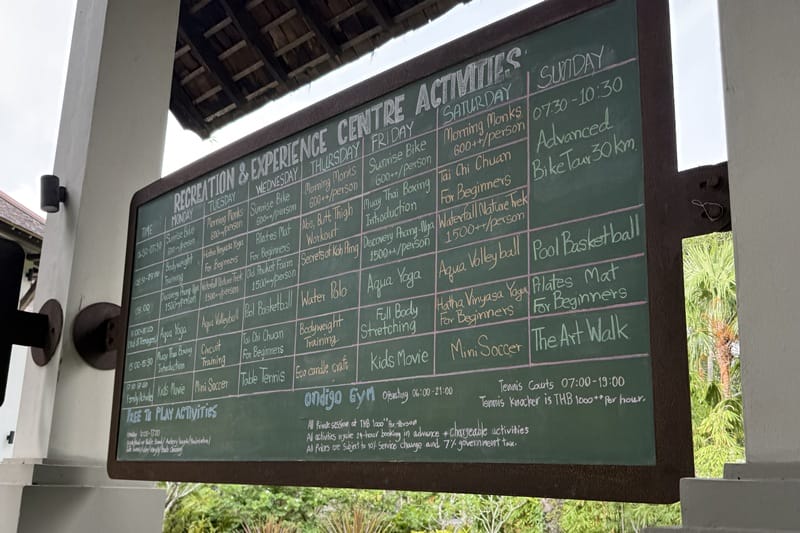 RECREATION & EXPERIENCE CENTRE ACTIVITIES
TIME MONDAY TUESDAY WEDNESDAY THURSDAY FRIDAY SATURDAY SUNDAY
Sunrise Bike 600++/person
Morning Monks 600++/person
Sunrise Bike 600++/person
Morning Monks 600++/person
Sunrise Bike 600++/person
Morning Monks 600++/person
07:30-10:30
Advanced
Bike Tour 30km.
Bodyweight Training
Hatha Vinyasa Yoga For Beginners
Pilates Mat For Beginners
Abs, Butt Thigh Workout
Muay Thai Boxing Introduction
Tai Chi Chuan For Beginners
09:00
1500++/person
Waterfall Nature Trek 1500++/person
Old Phuket Town 1500++/person
Secrets of Koh Ping
Discovery Phang-Nga 1500++/person
Waterfall Nature Trek 1500++/person
Aqua Yoga
Aqua Volleyball
Pool Basketball
Water Polo
Aqua Yoga
Aqua Volleyball
Pool Basketball
Muay Thai Boxing Introduction
Circuit Training
Tai Chi Chuan For Beginners
Bodyweight Training
Full Body Stretching
Hatha Vinyasa Yoga For Beginners
Pilates Mat For Beginners
Kids Movie
Mini Soccer
Table Tennis
Eco candle craft
Kids Movie
Mini Soccer
The Art Walk
FREE TO PLAY ACTIVITIES
Gym Operating 06:00-21:00
Tennis Courts 07:00-19:00
Tennis Knocker is THB 1000++ Per hour.
All Private session at THB 1000++ Per Person
All activities require 24-hour booking in advance + chargeable activities
All Prices are subject to 10% service charge and 7% government tax.